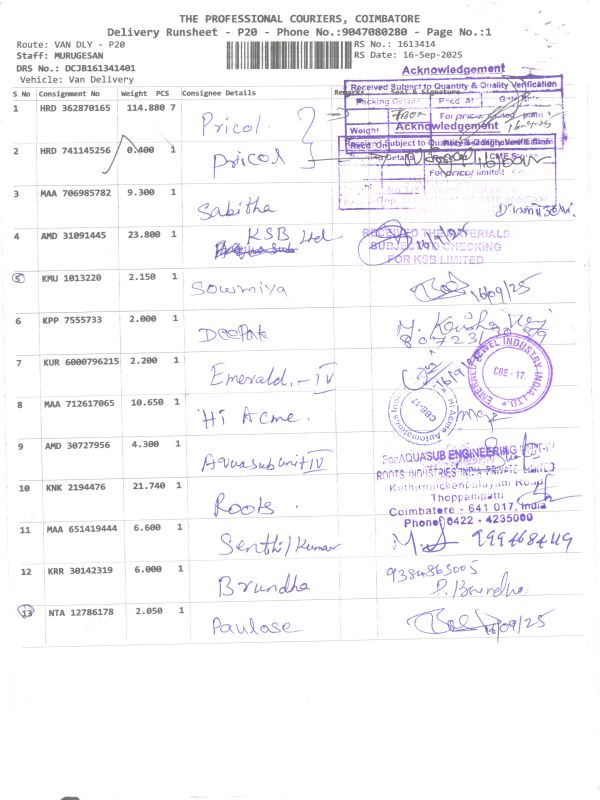 THE PROFESSIONAL COURIERS, COIMBATORE
Delivery Runsheet - P20 - Phone No.:9047080280 - Page No.:1
Route: VAN DLY - P20
RS No.: 1613414
Staff: MURUGESAN
RS Date: 16-Sep-2025
DRS No.: DCJB161341401
Vehicle: Van Delivery
Acknowledgement
S No Consignment No Weight PCS Consignee Details Remarks Seal & Signature
Received Subject to Quantity & Quality Verification
1 HRD 362870165 114.880 7 Pricol
Weight
Acknowledgement
2 HRD 741145256 0.400 1 Pricol
3 MAA 706985782 9.300 1 Sabitha
4 AMD 31091445 23.800 1 KSB Ltd
RECEIVED THE MATERIALS
SUBJECT TO CHECKING
FOR KSB LIMITED
16/9/25
5 KMU 1013220 2.150 1 Sowmiya 16/09/25
6 KPP 7555733 2.000 1 Deepak
7 KUR 6000796215 2.200 1 Emerald.-IV
EMERALD JEWEL INDUSTRY INDIA LTD.
CBE - 17
8 MAA 712617065 10.650 1 Hi Acme.
Hi Acme Automations
CBE-17
9 AMD 30727956 4.300 1 Aquasub unit IV
For AQUASUB ENGINEERING UNIT-IV
10 KNK 2194476 21.740 1 Roots.
ROOTS INDUSTRIES INDIA PRIVATE LIMITED
Kathirnaickenpalayam Road
Thoppampatti
Coimbatore - 641 017, India
Phone: 0422 - 4235000
11 MAA 651419444 6.600 1 Senthil Kumar
12 KRR 30142319 6.000 1 Brundha
9384863005
P. Brundha
13 NTA 12786178 2.050 1 Paulose 16/09/25